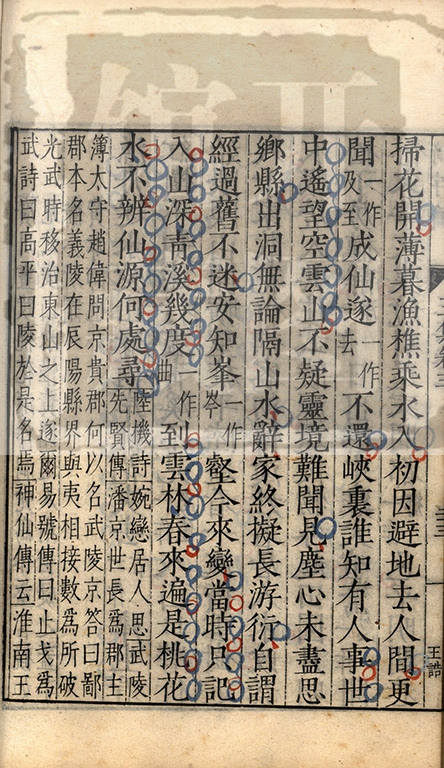 掃花開薄暮漁樵乘水入初因避地去人間更
聞一作及至成仙遂一作去不還峽裏誰知有人事世
中遙望空雲山不疑靈境難聞見塵心未盡思
鄉縣出洞無論隔山水辭家終擬長游衍自謂
經過舊不迷安知峯一作岑壑今來變當時只記
入山深青溪幾度一作曲到雲林春來遍是桃花
水不辨仙源何處尋陸機詩婉戀居人思武陵
先賢傳潘京世長爲郡主
簿太守趙偉問京貴郡何以名武陵京答曰鄙
郡本名義陵在辰陽縣界與夷相接數爲所破
光武時移治東山之上遂爾易號傳曰止戈爲
武詩曰高平曰陵於是名焉神仙傳云淮南王
王誥